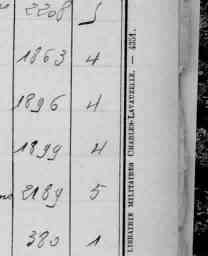 2208 5
1863 4
1896 4
1899 4
2189 5
380 1
LIBRAIRIE MILITAIRE CHARLES-LAVAUZELLE. — 4351.